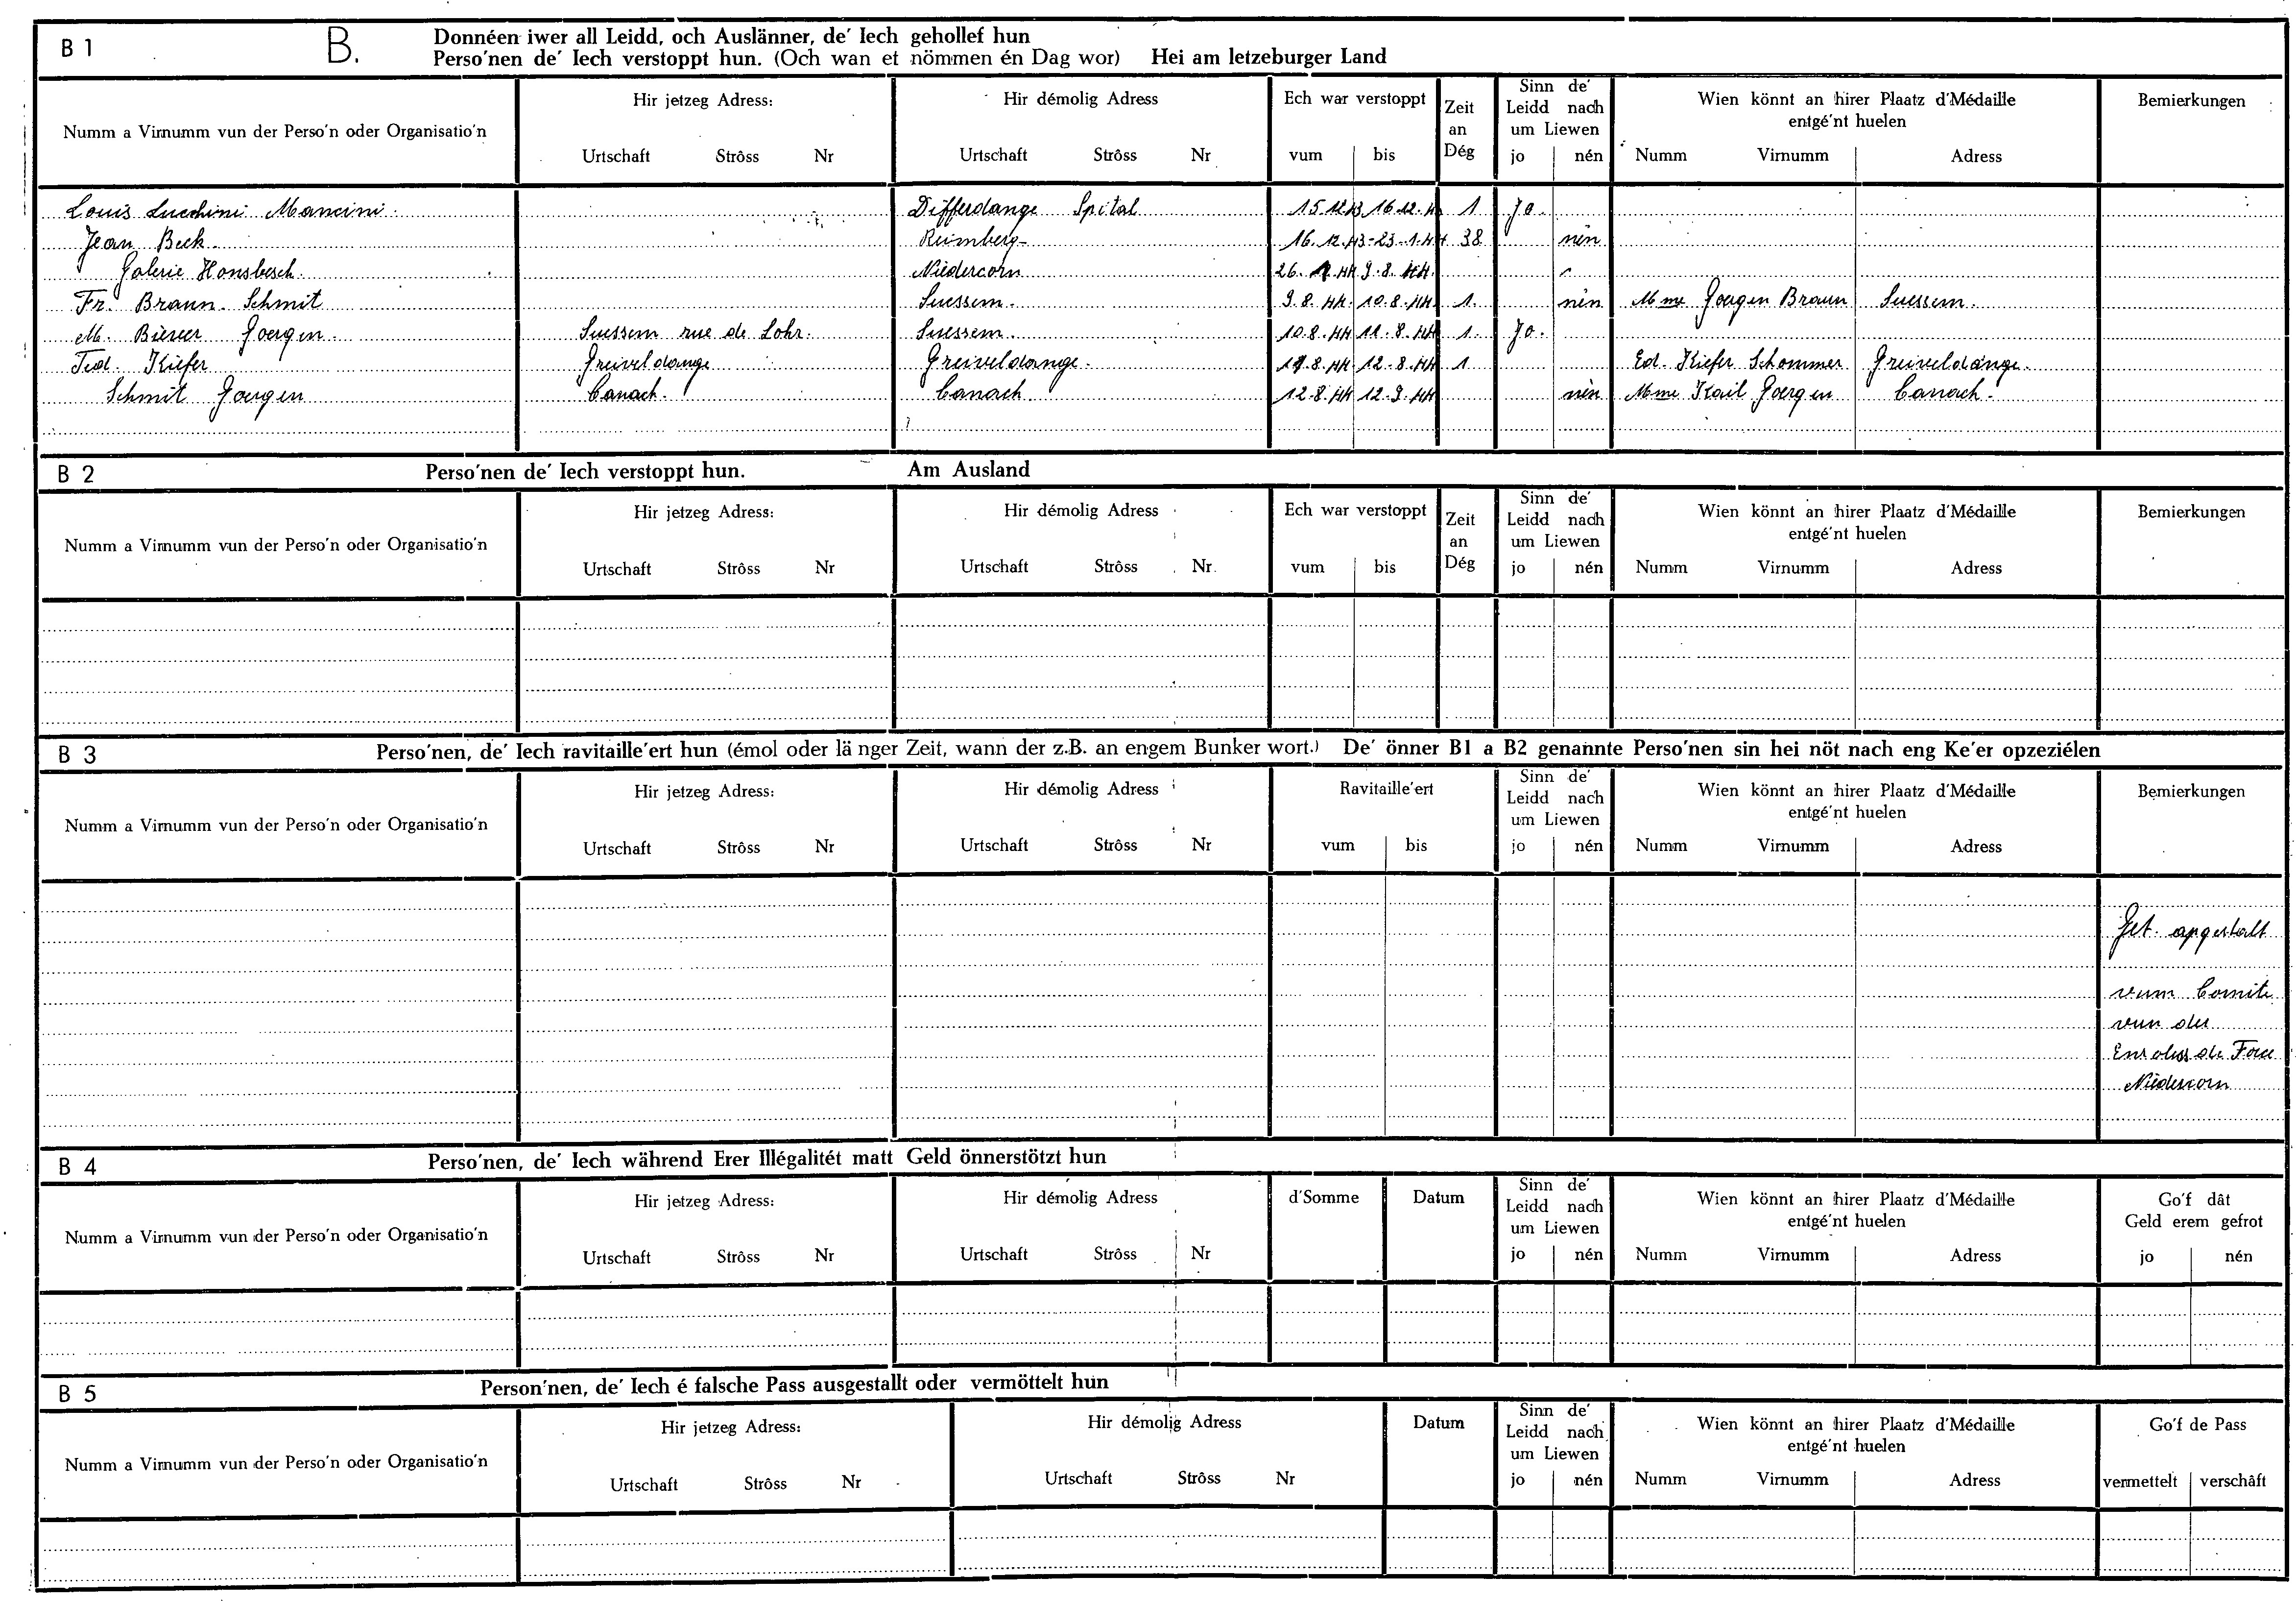 B 1 B. Donnéen iwer all Leidd, och Auslänner, de' Iech gehollef hun
Perso'nen de' Iech verstoppt hun. (Och wan et nömmen én Dag wor) Hei am letzeburger Land
Numm a Virnumm vun der Perso'n oder Organisatio'n
Hir jetzeg Adress:
Urtschaft Strôss Nr
Hir démolig Adress
Urtschaft Strôss Nr
Ech war verstoppt
vum bis
Zeit
an
Dég
Sinn de'
Leidd nach
um Liewen
jo nén
Wien könnt an hirer Plaatz d'Médaille
entgé'nt huelen
Numm Virnumm Adress
Bemierkungen
Louis Lucchini Mancini Differdange Spital 15.12.43 16.12.4 1 Jo.
Jean Beck. Reimberg 16.12.43-23.1.44 38 nén
Galerie Honsbesch. Niedercorn 26.1.44 9.8.44.
Fr. Braun. Schmit Suessem. 9.8.44. 10.8.44 1. nén Mme Goergen Braun Suessem.
M. Goergen. Suessem rue de Lohr. Suessem. 10.8.44 11.8.44 1. Jo.
Kiefer Greiveldange Greiveldange. 11.8.44. 12.8.44 1 Ed. Kiefer Schommer Greiveldange.
Schmit Goergen Canach. Canach 12.8.44 12.9.44 nén Mme Kail Goergen Canach.
B 2 Perso'nen de' Iech verstoppt hun. Am Ausland
Numm a Virnumm vun der Perso'n oder Organisatio'n
Hir jetzeg Adress:
Urtschaft Strôss Nr
Hir démolig Adress
Urtschaft Strôss Nr
Ech war verstoppt
vum bis
Zeit
an
Dég
Sinn de'
Leidd nach
um Liewen
jo nén
Wien könnt an hirer Plaatz d'Médaille
entgé'nt huelen
Numm Virnumm Adress
Bemierkungen
B 3 Perso'nen, de' Iech ravitaille'ert hun (émol oder länger Zeit, wann der z.B. an engem Bunker wort.) De' önner B1 a B2 genannte Perso'nen sin hei nöt nach eng Ke'er opzeziélen
Numm a Virnumm vun der Perso'n oder Organisatio'n
Hir jetzeg Adress:
Urtschaft Strôss Nr
Hir démolig Adress
Urtschaft Strôss Nr
Ravitaille'ert
vum bis
Sinn de'
Leidd nach
um Liewen
jo nén
Wien könnt an hirer Plaatz d'Médaille
entgé'nt huelen
Numm Virnumm Adress
Bemierkungen
vum Comite
vun der
Niedercorn
B 4 Perso'nen, de' Iech während Erer Illégalitét matt Geld önnerstötzt hun
Numm a Virnumm vun der Perso'n oder Organisatio'n
Hir jetzeg Adress:
Urtschaft Strôss Nr
Hir démolig Adress
Urtschaft Strôss Nr
d'Somme
Datum
Sinn de'
Leidd nach
um Liewen
jo nén
Wien könnt an hirer Plaatz d'Médaille
entgé'nt huelen
Numm Virnumm Adress
Go'f dât
Geld erem gefrot
jo nén
B 5 Person'nen, de' Iech é falsche Pass ausgestallt oder vermöttelt hun
Numm a Virnumm vun der Perso'n oder Organisatio'n
Hir jetzeg Adress:
Urtschaft Strôss Nr
Hir démolig Adress
Urtschaft Strôss Nr
Datum
Sinn de'
Leidd nach
um Liewen
jo nén
Wien könnt an hirer Plaatz d'Médaille
entgé'nt huelen
Numm Virnumm Adress
Go'f de Pass
vermettelt verschâft